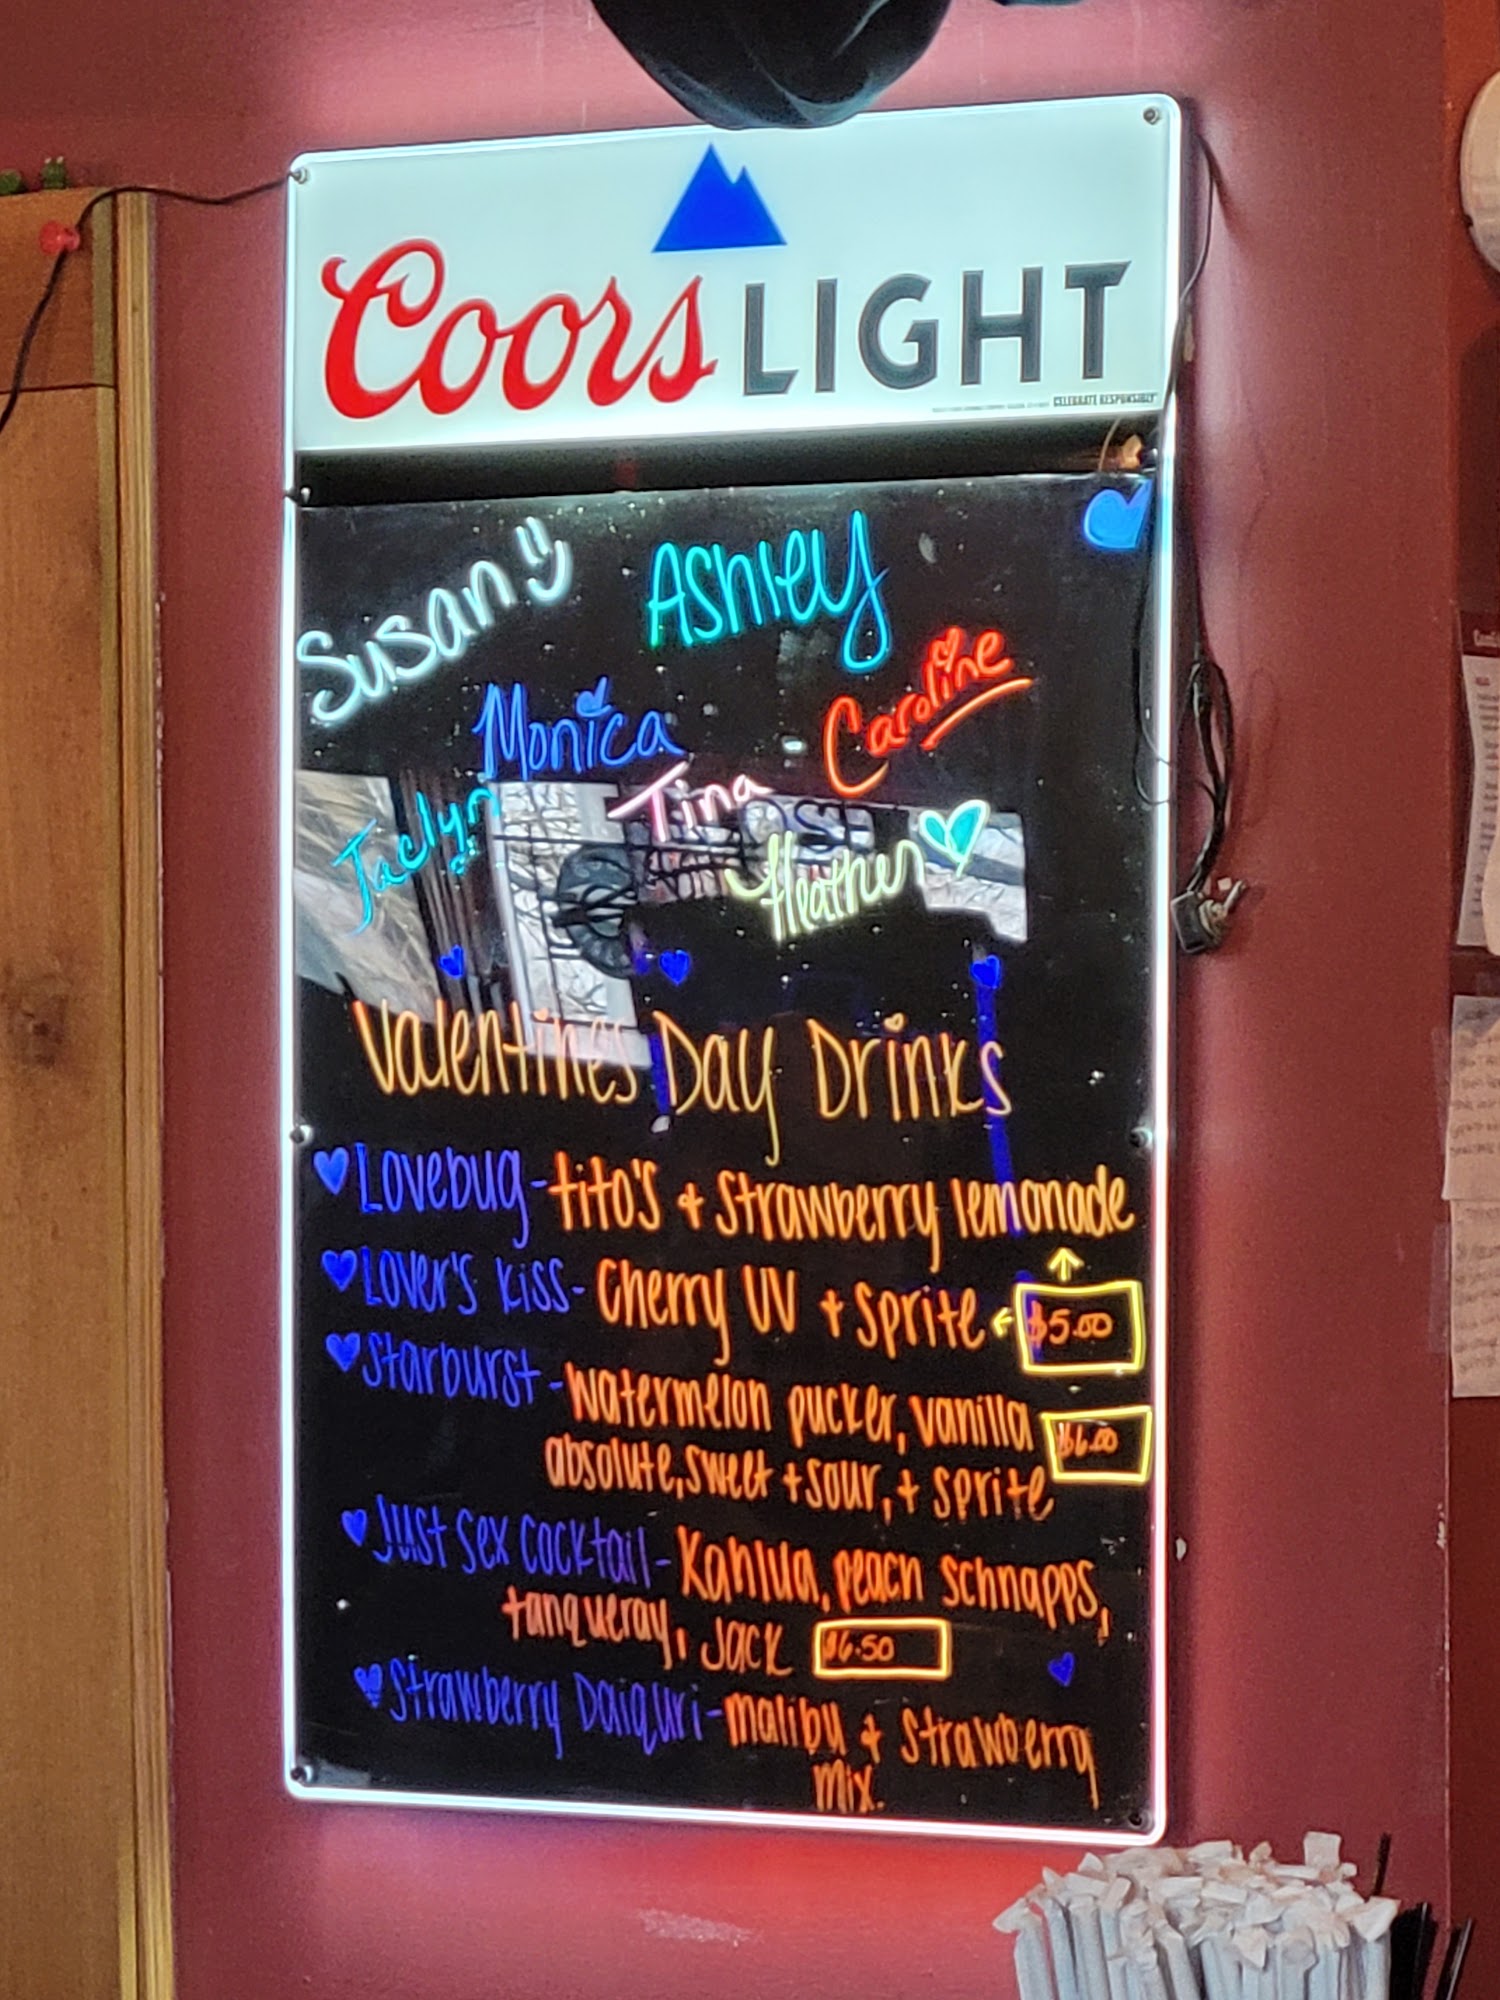 Coors LIGHT
CELEBRATE RESPONSIBLY
Susan
Ashley
Caroline
Monica
Tina
Jaclyn
Heather
Valentines Day Drinks
Lovebug - tito's + strawberry lemonade
Lover's kiss - Cherry UV + sprite ← $5.00
Starburst - watermelon pucker, vanilla $6.00
absolute, sweet + sour, + sprite
Just sex cocktail - Kahlua, peach schnapps,
tanqueray, Jack $6.50
Strawberry Daiquri - malibu + strawberry
mix.